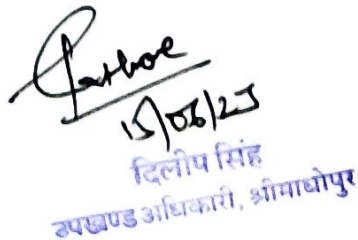 15/06/23
दिलीप सिंह
उपखण्ड अधिकारी, श्रीमाधोपुर